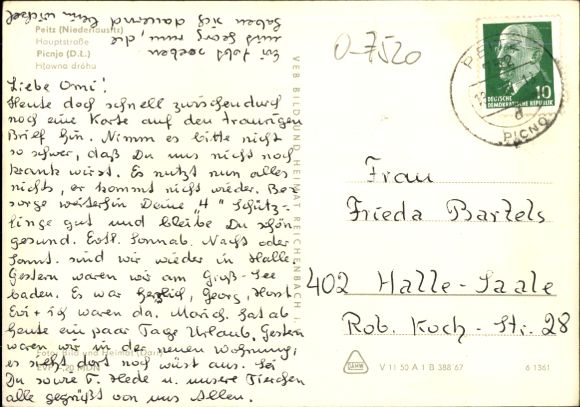 Peitz (Niederlausitz)
Hauptstraße
Picnjo (D.L.)
Hłowna dróha
Evi tobt soeben
mit Georg rum, die
haben sich dauernd beim wickel
Liebe Omi!
Heute doch schnell zwischendurch
noch eine Karte auf den traurigen
Brief hin. Nimm es bitte nicht
so schwer, daß Du uns nicht noch
krank wirst. Es nützt nun alles
nichts, er kommt nicht wieder. Be-
sorge weiterhin Deine "4" Schütz-
linge gut und bleibe Du schön
gesund. Evtl. Sonnab. Nacht oder
Sonnt. sind wir wieder in Halle.
Gestern waren wir am Groß-See
baden. Es war herrlich, Georg, Horst
Evi + ich waren da. Marich. hat ab
heute ein paar Tage Urlaub. Gestern
waren wir in der neuen Wohnung,
es sieht dort noch wüst aus. Sei
Du sowie T. Hede u. unsere Tierchen
alle gegrüßt von uns Allen.
Foto: Bild und Heimat (Darr)
EVP -,20 MDN
VEB BILD UND HEIMAT REICHENBACH I.
O-7520
PEITZ
PICNJO
d
DEUTSCHE
DEMOKRATISCHE REPUBLIK
10
Frau
Frieda Bartels
402 Halle-Saale
Rob. Koch-Str. 28
DAHW
V 11 50 A 1 B 388/67
6 1361